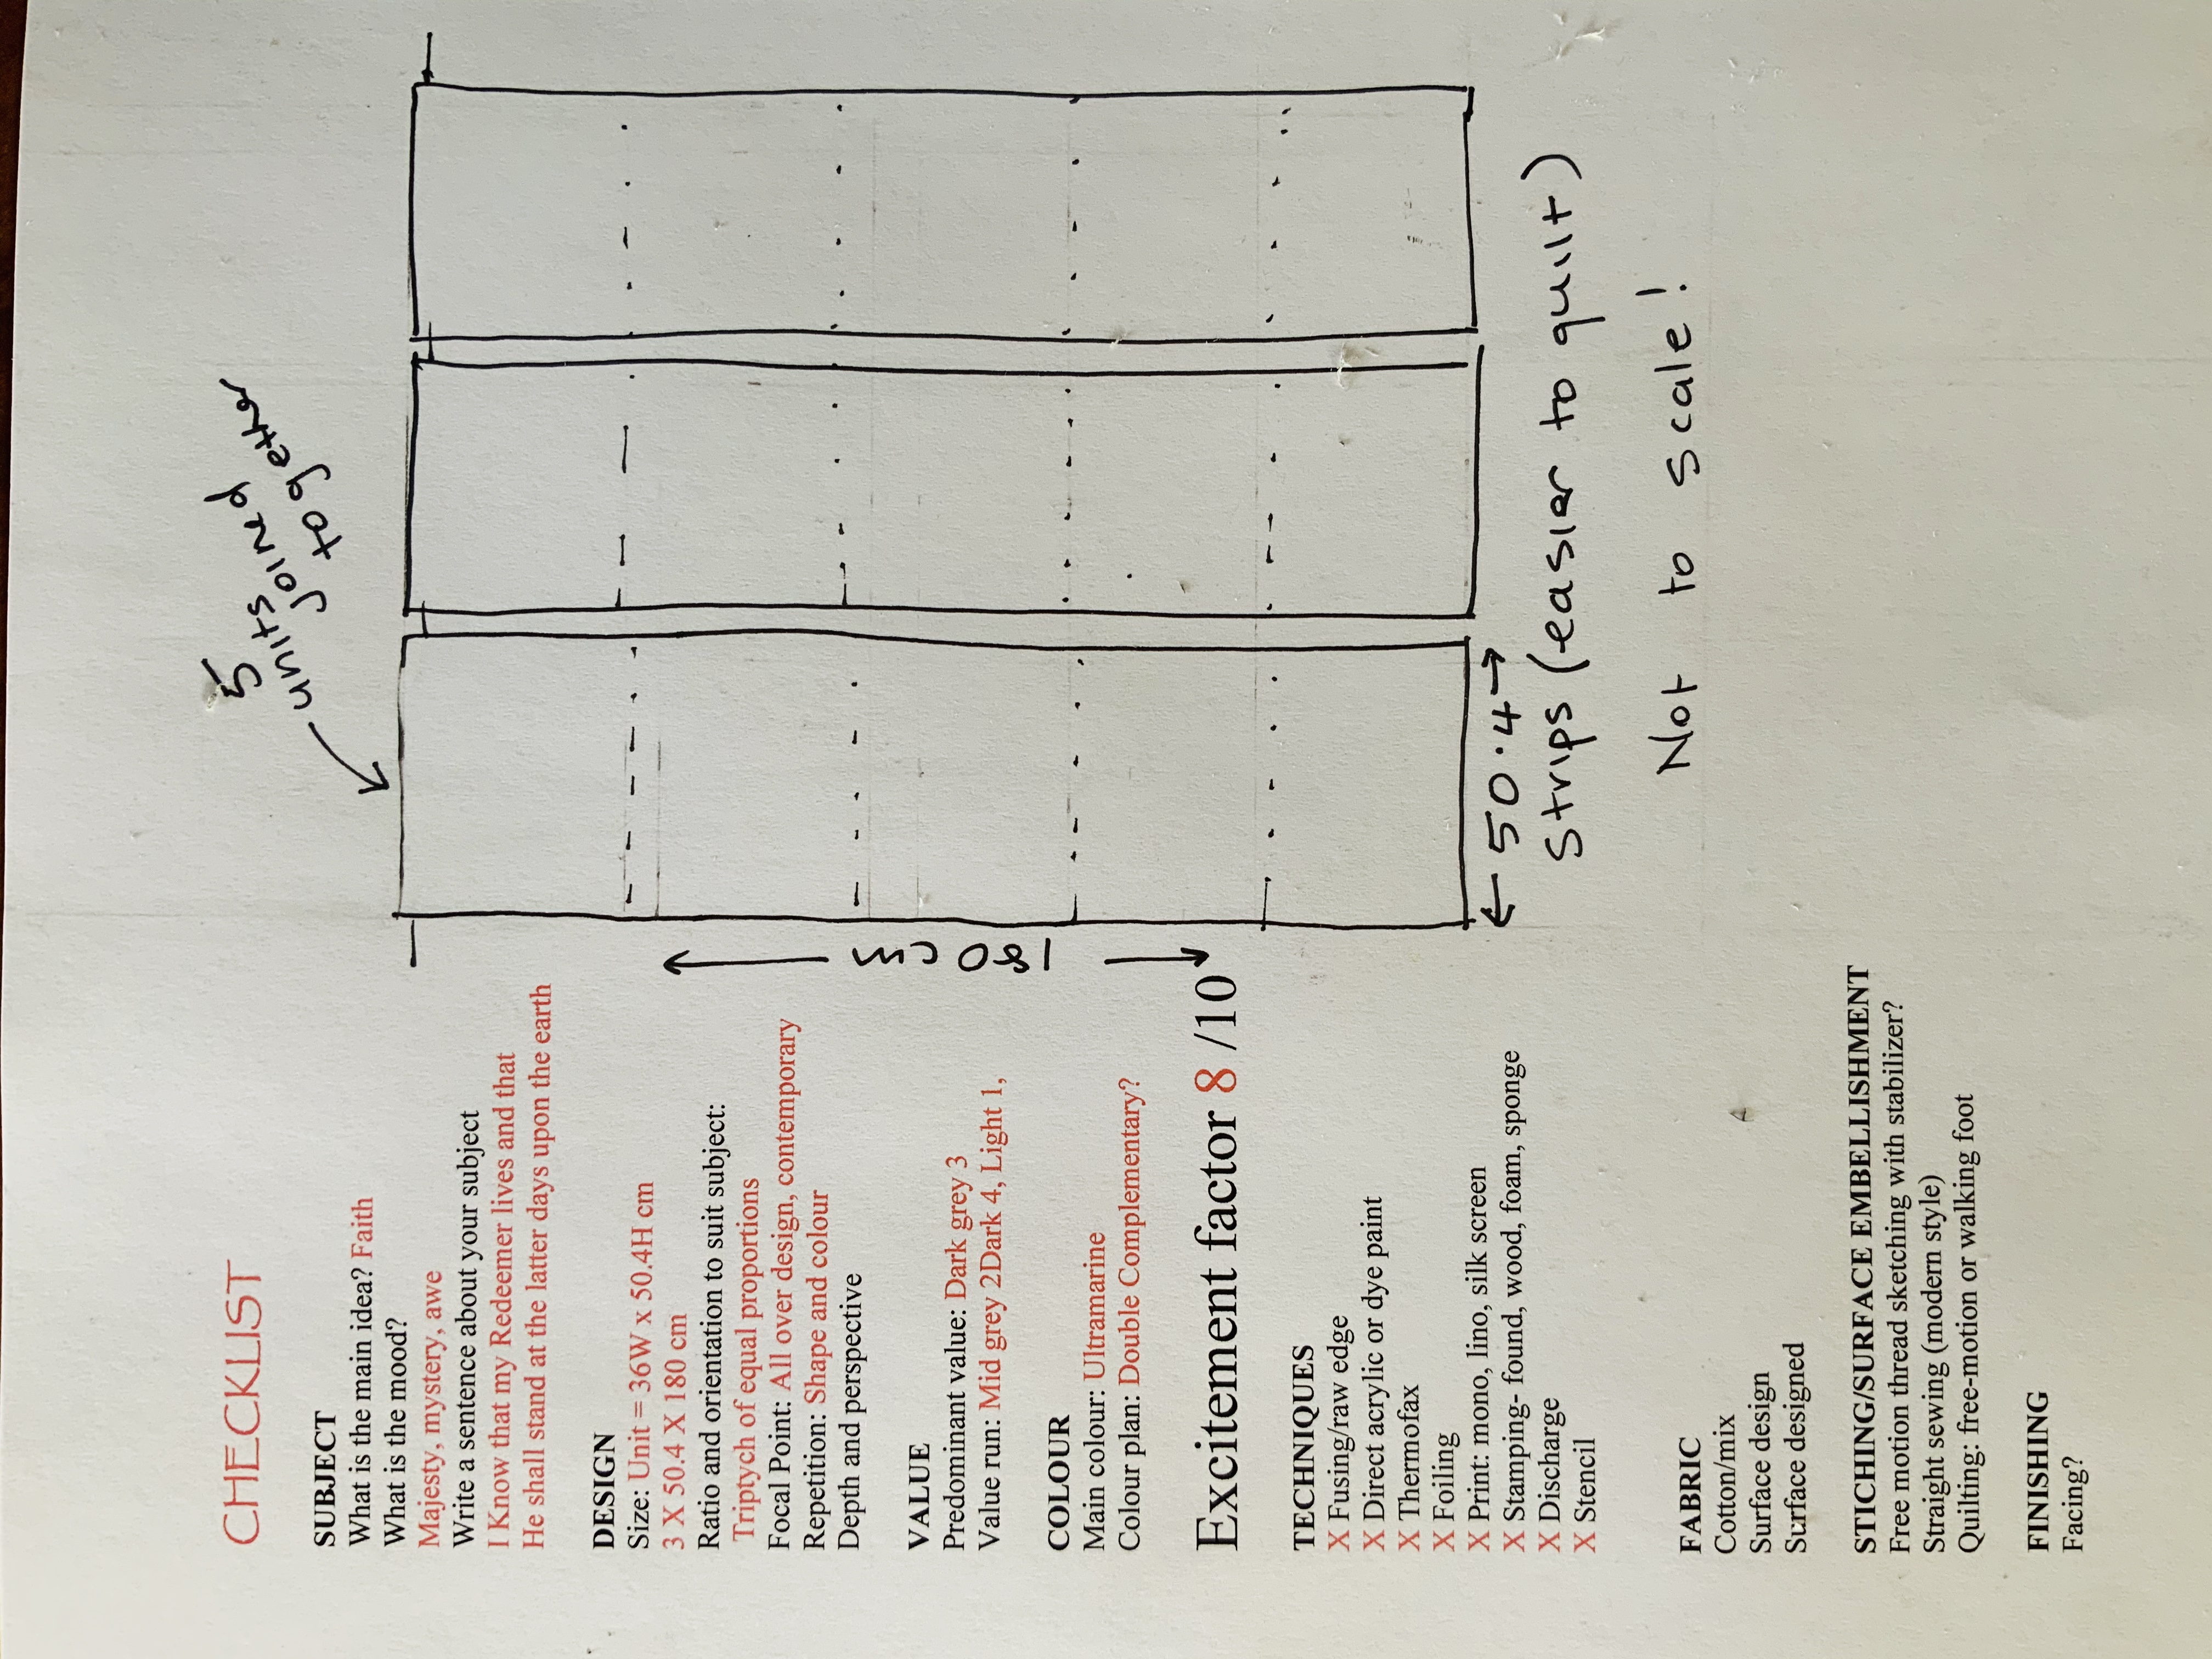 CHECKLIST
SUBJECT
What is the main idea? Faith
What is the mood?
Majesty, mystery, awe
Write a sentence about your subject
I Know that my Redeemer lives and that
He shall stand at the latter days upon the earth
DESIGN
Size: Unit = 36W x 50.4H cm
3 X 50.4 X 180 cm
Ratio and orientation to suit subject:
Triptych of equal proportions
Focal Point: All over design, contemporary
Repetition: Shape and colour
Depth and perspective
VALUE
Predominant value: Dark grey 3
Value run: Mid grey 2Dark 4, Light 1,
COLOUR
Main colour: Ultramarine
Colour plan: Double Complementary?
Excitement factor 8 /10
TECHNIQUES
X Fusing/raw edge
X Direct acrylic or dye paint
X Thermofax
X Foiling
X Print: mono, lino, silk screen
X Stamping- found, wood, foam, sponge
X Discharge
X Stencil
FABRIC
Cotton/mix
Surface design
Surface designed
STICHING/SURFACE EMBELLISHMENT
Free motion thread sketching with stabilizer?
Straight sewing (modern style)
Quilting: free-motion or walking foot
FINISHING
Facing?
5
units
joined
together
180 cm
← 50.4 →
Strips (easier to quilt)
Not to scale!